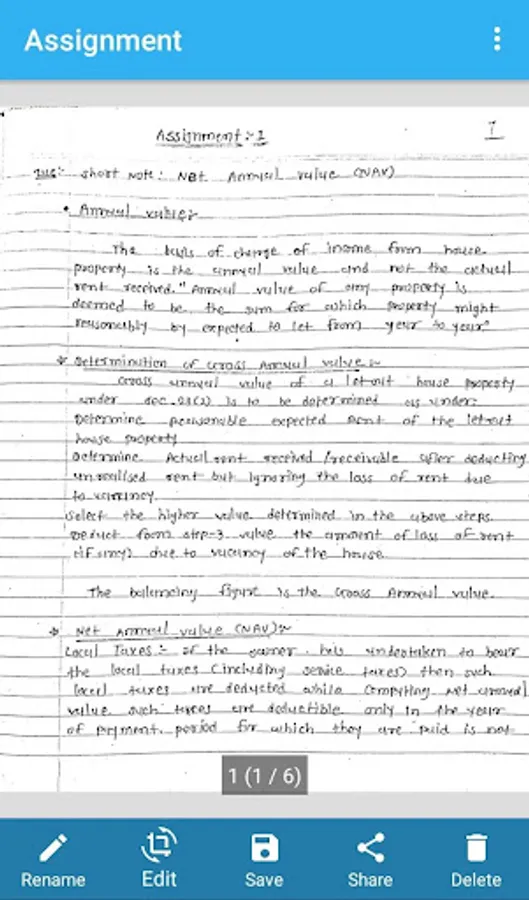 Assignment
Assignment :- 1
1
short note: Net Annual value (NAV)
• Annual value:-
The basis of charge of income form house
property is the annual value and not the actual
rent received. "Annual value of any property is
deemed to be the sum for which property might
reasonably by expected to let from year to year"
Determination of Gross Annual value:-
Gross annual value of a letout house property
under sec.23(1) is to be determined as under:
Determine reasonable expected rent of the letout
house property
Determine Actual rent received /receivable after deducting
unrealised rent but ignoring the loss of rent due
to vacancy.
Select the higher value determined in the above steps.
Deduct from step-3 value the amount of loss of rent
(if any) due to vacancy of the house.
The balancing figure is the Gross Annual value.
Net Annual value (NAV):-
Local Taxes:- if the owner has undertaken to bear
the local taxes (including service taxes) then such
local taxes are deducted while computing net annual
value such taxes are deductible only in the year
of payment. period for which they are paid is not
1 (1 / 6)
Rename
Edit
Save
Share
Delete